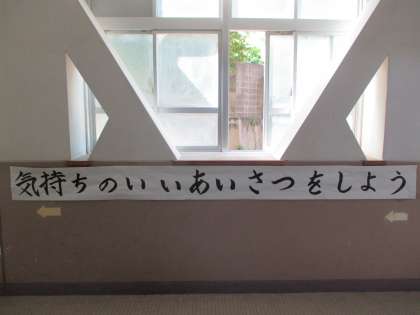 気持ちのいいあいさつをしよう